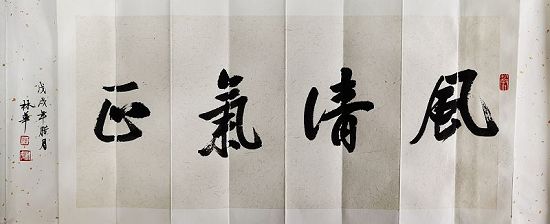 風清氣正
戊戌年腊月
林華